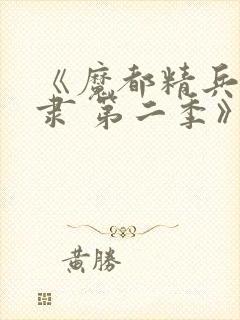 《魔都精兵
隶 第二季》
黄勝